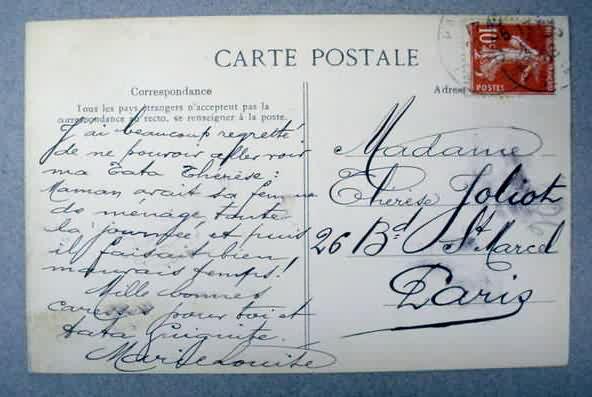 CARTE POSTALE
Correspondance
Tous les pays étrangers n'acceptent pas la
correspondance au recto, se renseigner à la poste.
J'ai beaucoup regretté
de ne pouvoir aller voir
ma Tata Thérèse :
Maman avait sa femme
de ménage toute
la journée et puis
il faisait bien
mauvais temps!
Mille bonnes
caresses pour toi et
tata Guiguite.
Marie Louise
Adres
10
POSTES
Madame
Thérèse Joliot
26 Bd St Marcel
Paris